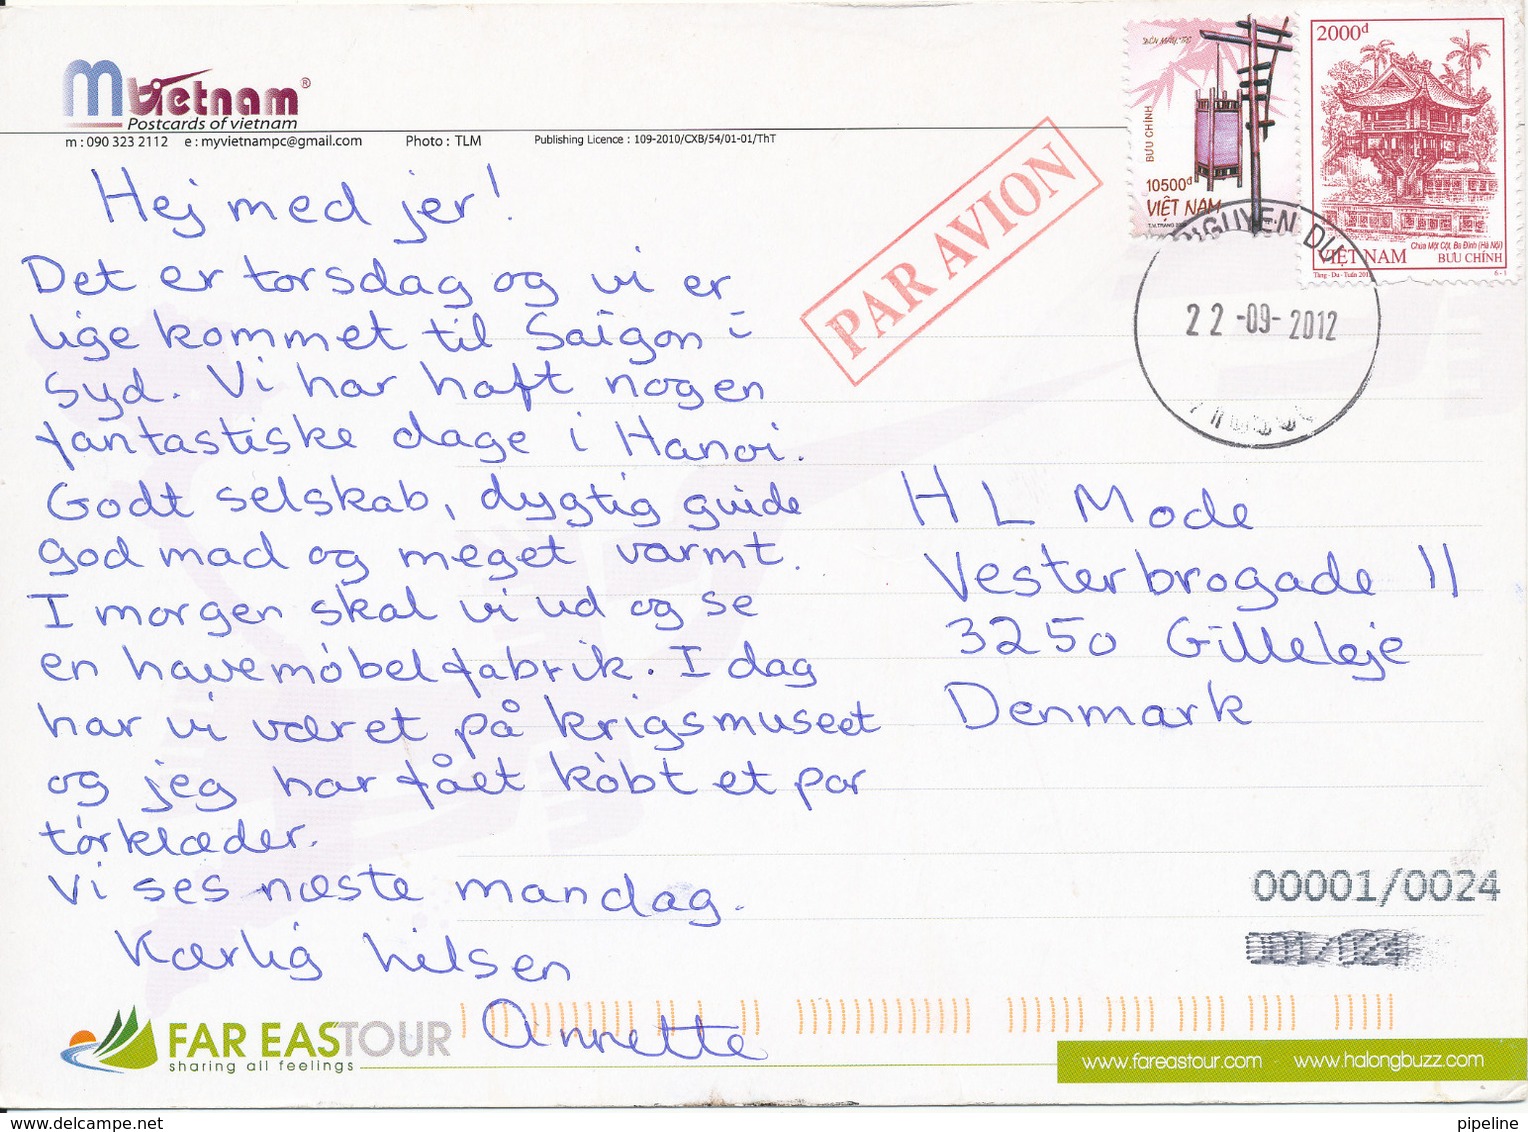 Myvietnam®
Postcards of vietnam
m : 090 323 2112 e : myvietnampc@gmail.com Photo : TLM Publishing Licence : 109-2010/CXB/54/01-01/ThT
BƯU CHÍNH
10500đ
VIỆT NAM
2000đ
Chùa Một Cột, Ba Đình (Hà Nội)
VIỆT NAM BƯU CHÍNH
6 - 1
PAR AVION
NGUYEN DU
22-09-2012
Hej med jer!
Det er torsdag og vi er
lige kommet til Saigon i
syd. Vi har haft nogen
fantastiske dage i Hanoi.
Godt selskab, dygtig guide
god mad og meget varmt.
I morgen skal vi ud og se
en havemöbelfabrik. I dag
har vi været på krigsmuseet
og jeg har fået købt et par
tørklæder.
Vi ses næste mandag.
Kærlig hilsen
Annette
HL Mode
Vesterbrogade 11
3250 Gilleleje
Denmark
00001/0024
001/024
FAR EASTOUR
sharing all feelings
www.fareastour.com - www.halongbuzz.com
www.delcampe.net
pipeline